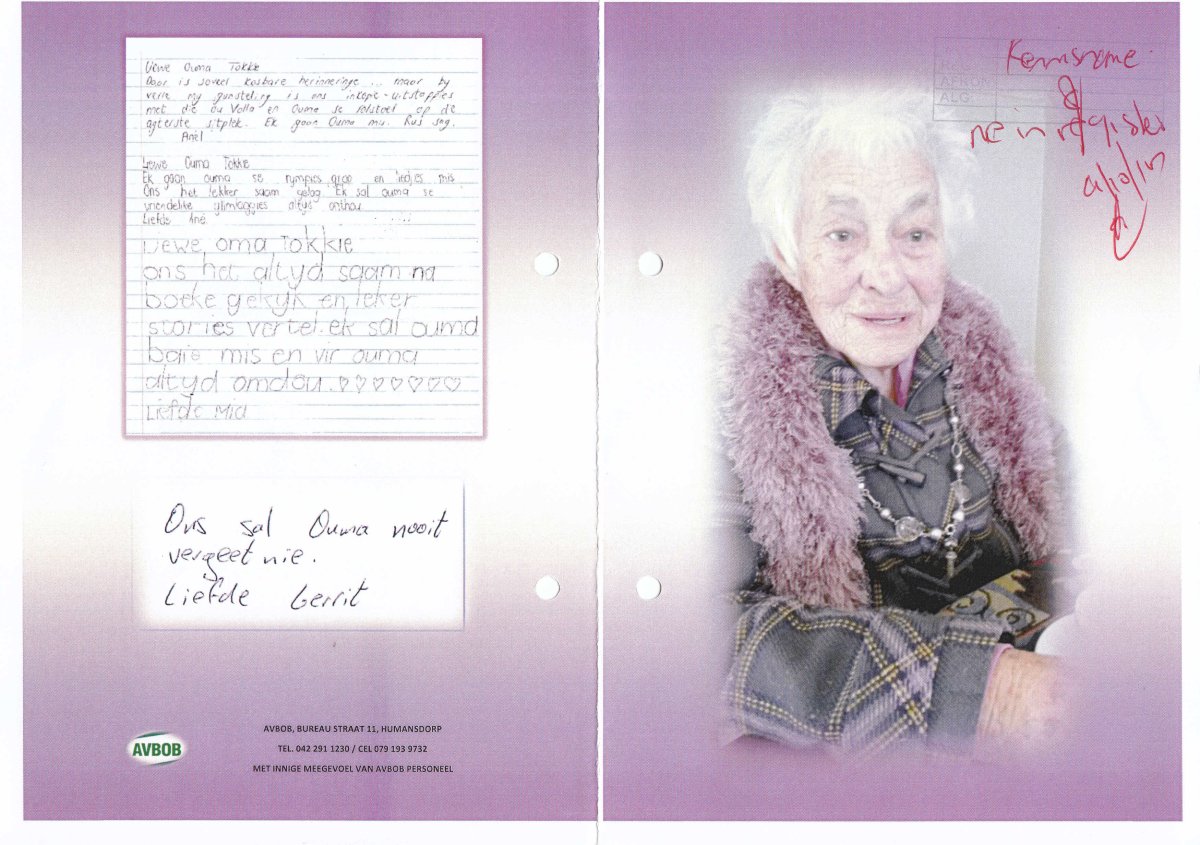 Liewe Ouma Tokkie
Daar is soveel kosbare herinneringe ... maar by
verre my gunsteling is ons inkopie-uitstappies
met die ou Volla en Ouma se rolstoel op die
agterste sitplek. Ek gaan Ouma mis. Rus sag.
Anel
Liewe Ouma Tokkie
Ek gaan ouma se rympies grao en liedjies mis
Ons het lekker saam gelag. Ek sal ouma se
vriendelike glimlaggies altyd onthou
Liefde Ané.
Liewe oma Tokkie
ons het altyd saam na
boeke gekyk en leker
stories vertel. ek sal ouma
baie mis en vir ouma
altyd omdou. ♡♡♡♡♡♡♡
Liefde Mia
Ons sal Ouma nooit
vergeet nie.
Liefde Gerrit
AVBOB
AVBOB, BUREAU STRAAT 11, HUMANSDORP
TEL. 042 291 1230 / CEL 079 193 9732
MET INNIGE MEEGEVOEL VAN AVBOB PERSONEEL
Kennisname
&
ne in register
ALG